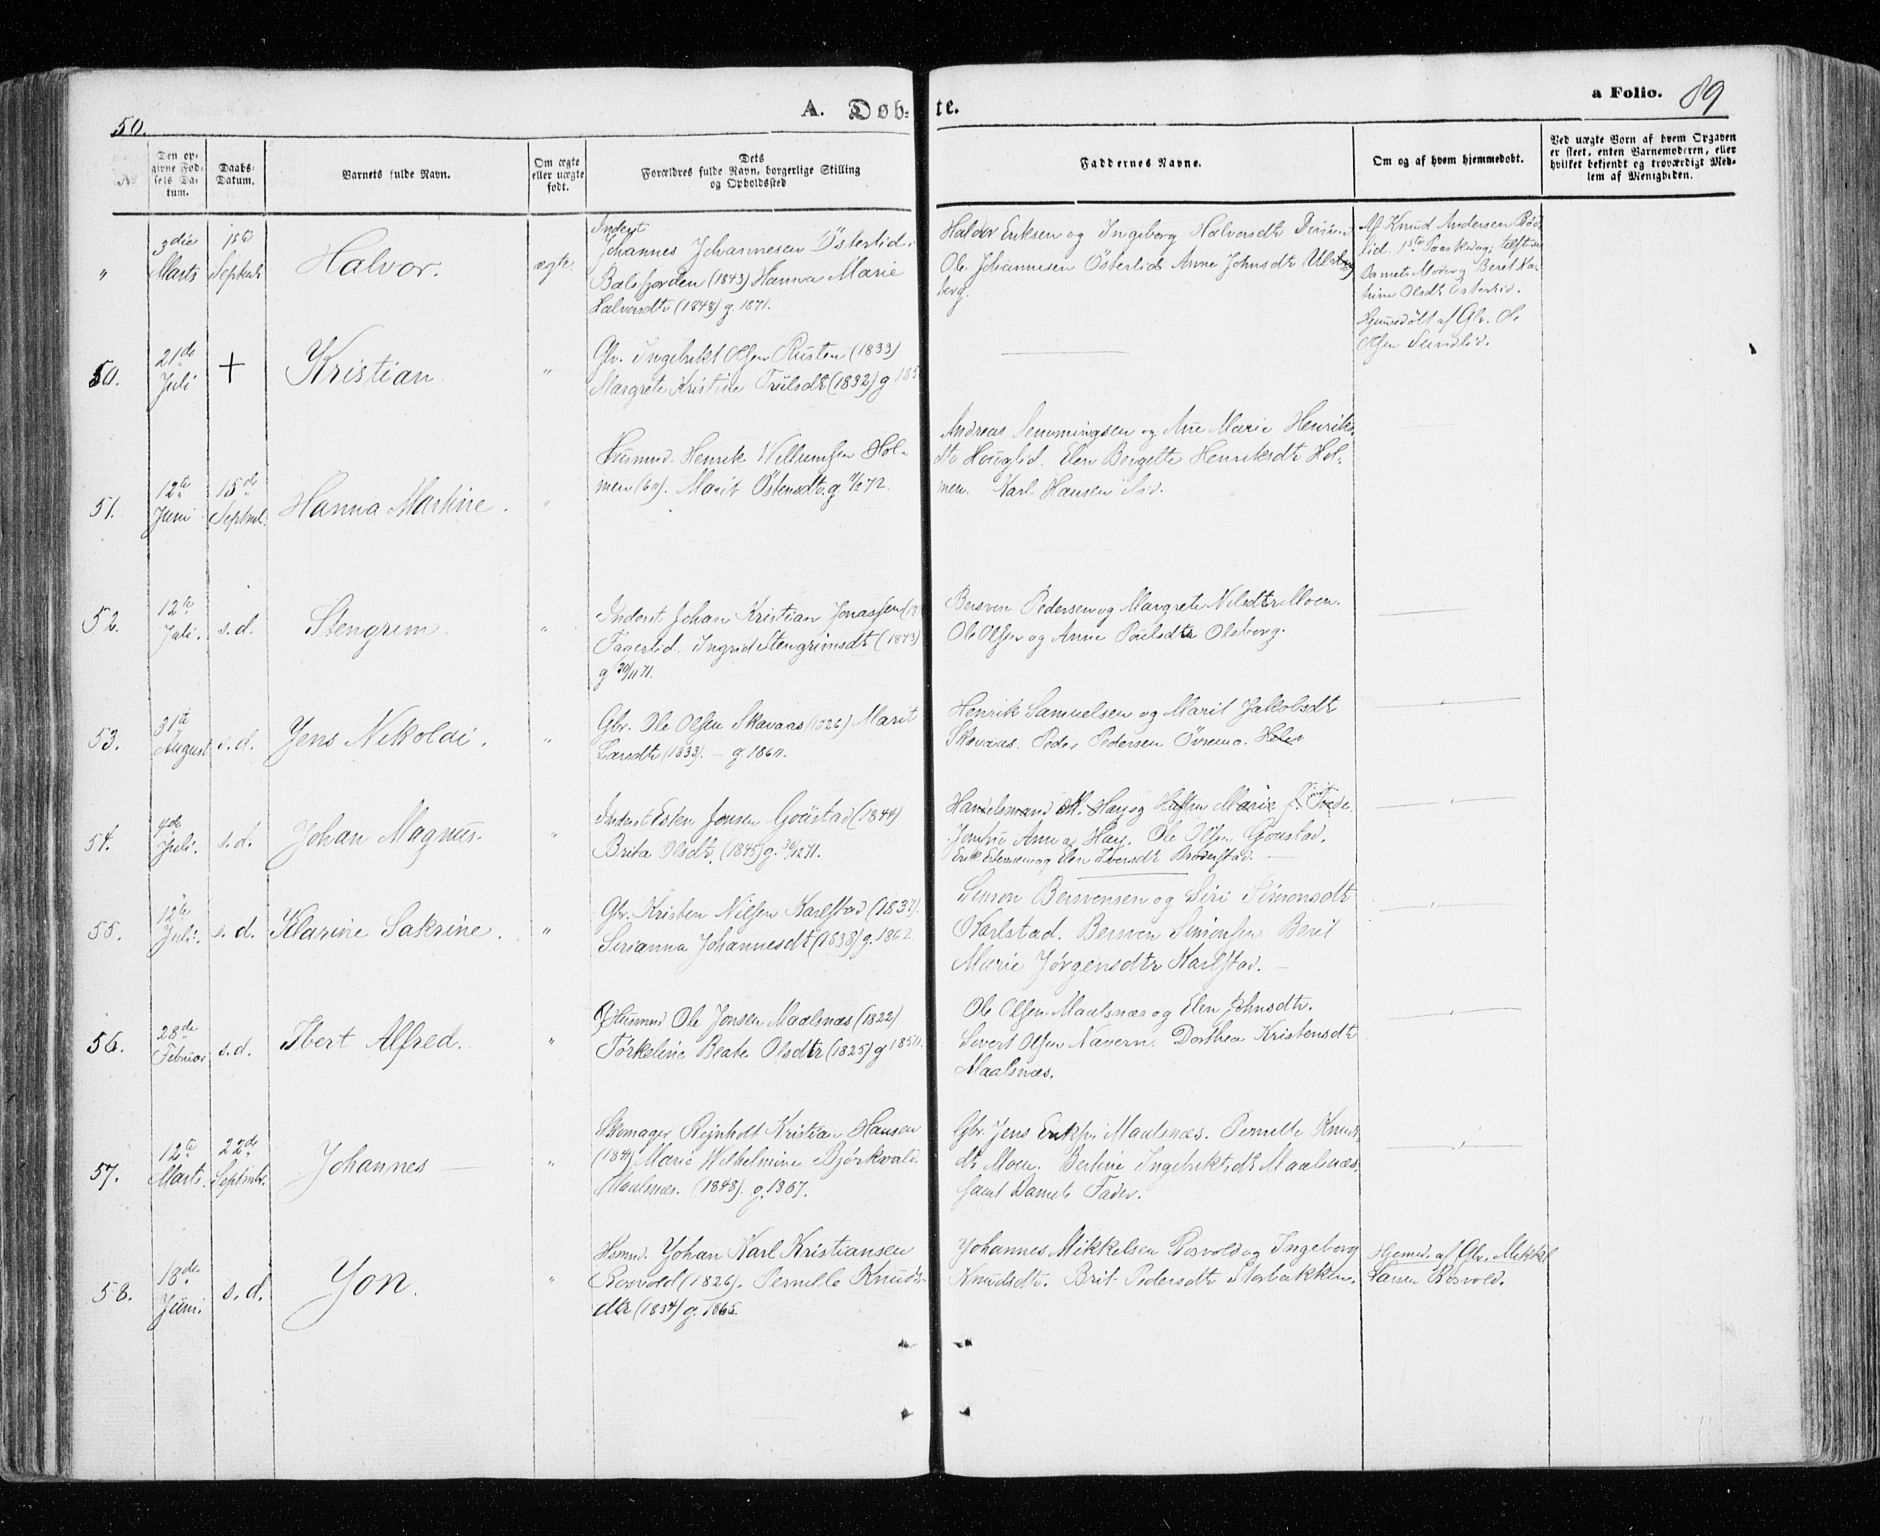 50.
A. Døb-
te.
a Folio. 89
No
Den op-
givne Fød-
sels Da-
tum.
Daabs-
Datum.
Barnets fulde Navn.
Om ægte
eller uægte
født.
Dets
Forældres fulde Navn, borgerlige Stilling
og Opholdssted
Faddernes Navne.
Om og af hvem hjemmedøbt.
Ved uægte Børn af hvem Opgaven
er skeet, enten Barnemoderen, eller
hvilket bekjendt og troværdigt Med-
lem af Menigheden.
"
3die
Marts
1ste
Septembr
Halvor.
ægte.
Inderst
Johannes Johannesen Östertid.
Balsfjorden (1843) Hanna Marie
Halvorsdtr (1848) g. 1871.
Eriksen og Ingeborg Halvorsdtr
Ole Johannesen Östertid Anne Johnsdtr
berg.
Af Knud Andersen
lid. 1ste Paaskedag;
Barnets Moder og Beret Ka-
trine Olsdtr
Hjemmedøbt af Gbr. Ole
Olsen
50.
21de
Juli
+
Kristian.
"
Gbr. Ingebrikt Olsen Rusten (1833)
Margrete Kristine (1832) g 185
51.
12te
Juni
15de
Septmb.
Hanna Martine.
"
Husmnd. Henrik Willumsen Hol-
men (60). Marit Östensdtr. g 72.
Andreas Semmingsen og Ane Marie Henriks-
dtr Houglid. Elen Bergette Henriksdtr Hol-
men. Karl Hansen
52.
12te
Juli.
s.d.
Stengrim.
"
Inderst Johan Kristian Jonassen
Fagerlid. Ingrid Stengrimsdtr (1843)
g 30/11 71.
Bersven Pedersen og Margrete Nilsdtr Moen.
Ole Olsen og Anne Olsborg.
53.
31te
August
s.d.
Jens Nikolai.
"
Gbr. Ole Olsen Skavaas (1826) Marit
Larsdtr (1833). – g 1860.
Henrik Samuelsen og Marit Jakobsdtr
Skavaas. Peder Pedersen Övremo.
54.
4de
Juli.
s.d.
Johan Magnus.
"
Inderst Esten Jonsen Goustad (1844)
Brita Olsdtr. (1845) g. 71.
Handelsmand M. Hay og Marie
Jomfru Anne Hay. Ole Olsen Goustad.
Erik Estensen og Elen Iversdtr Broderstad.
55.
12te
Juli.
s.d.
Klarine Sakrine.
"
Gbr. Kristen Nilsen Karlstad (1837).
Serianna Johannesdtr (1838) g. 1862.
Simon Bersvensen og Siri Simonsdtr
Karlstad. Bersven Simonsen. Berit
Marie Jørgensdtr Karlstad.
56.
28de
Februar
s.d.
Ibert Alfred.
"
Husmnd Ole Jonsen Maalsnæs (1822)
Törkeline Beate Olsdtr (1825) g 1850.
Ole Olsen Maalsnæs og Elen Johnsdtr.
Sivert Olsen Navern. Dorthea Kristensdtr
Maalsnæs.
57.
12te
Marts.
22de
Septmbr.
Johannes
"
Skomager Rejnholt Kristian Hansen
(184) Marie Wilhelmine Bjørkvold
Maalsnæs. (1848). g. 1867.
Gbr. Jens Eriksen Maalsnæs. Pernille Knuds-
dtr Moen. Bertine Ingebriktsdtr Maalsnæs
samt Barnets Fader.
58.
18de
Juni.
s.d.
Jon.
"
Husmnd. Johan Karl Kristiansen
Rosvold (1826). Pernille Knuds-
dtr (1834) g. 1865.
Johannes Mikkelsen Rosvold og Ingeborg
Knudsdtr. Brit Pedersdtr Storbakken.
Hjemmed. af Gbr. Mikkel
Larsen Rosvold.